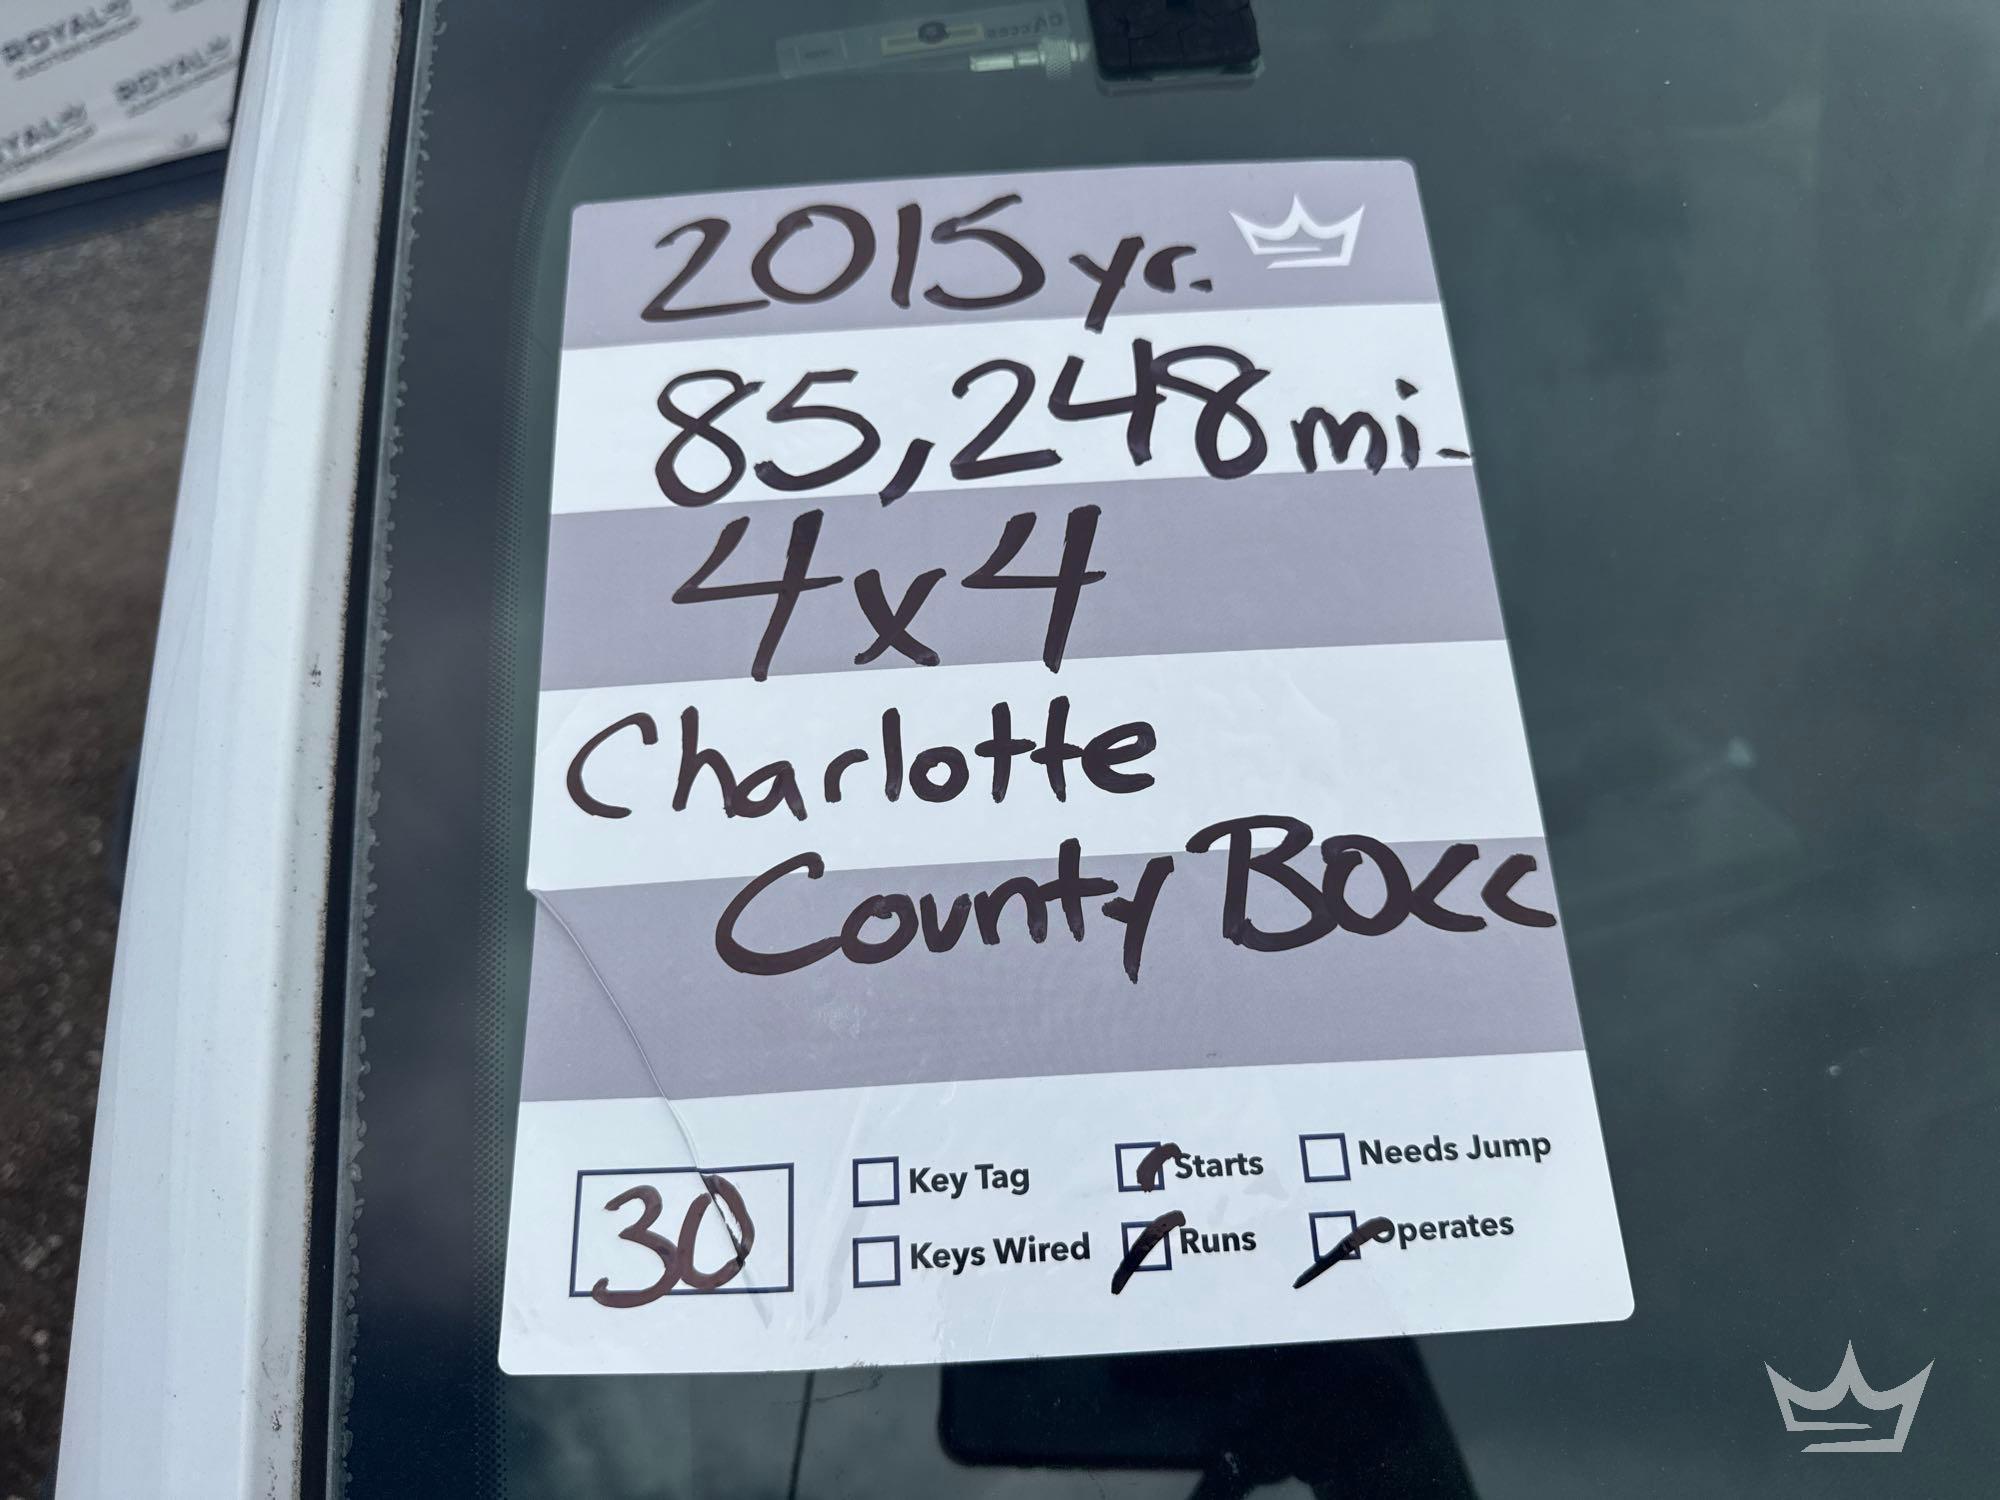 ROYAL
ROYAL
2015 yr.
85,248 mi.
4x4
Charlotte
County BOCC
30
Key Tag
Starts
Needs Jump
Keys Wired
Runs
Operates